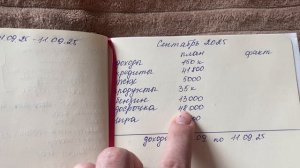 1.09.25 - 11.09.25
Сентябрь 2025
план факт
доходы 150 к
кредиты 41 800
5000
продукты 35 к
бензин 13 000
досрочка 48 000
доходы 09 по 11.09.25